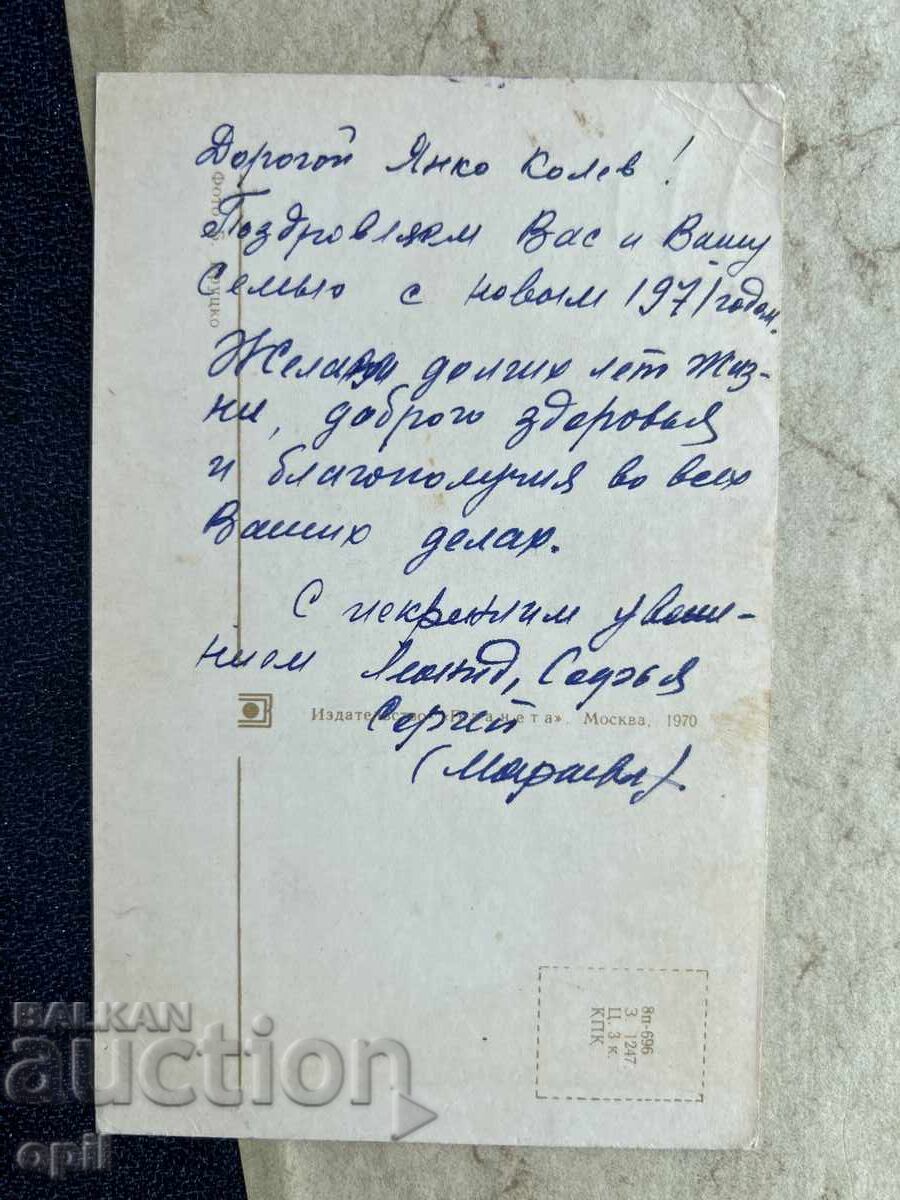 Дорогой Янко Колев!
Поздровляем Вас и Вашу
Семью с новым 1971 годом.
Желаем долгих лет жиз-
ни, доброго здоровья
и благополучия во всех
Ваших делах.
С искренним уваже-
нием Леонид, Софья
Сергей
Издательство «Планета». Москва, 1970
Фото
8п-696
З. 1247
Ц. 3 к.
КПК
BALKAN
auction
opil